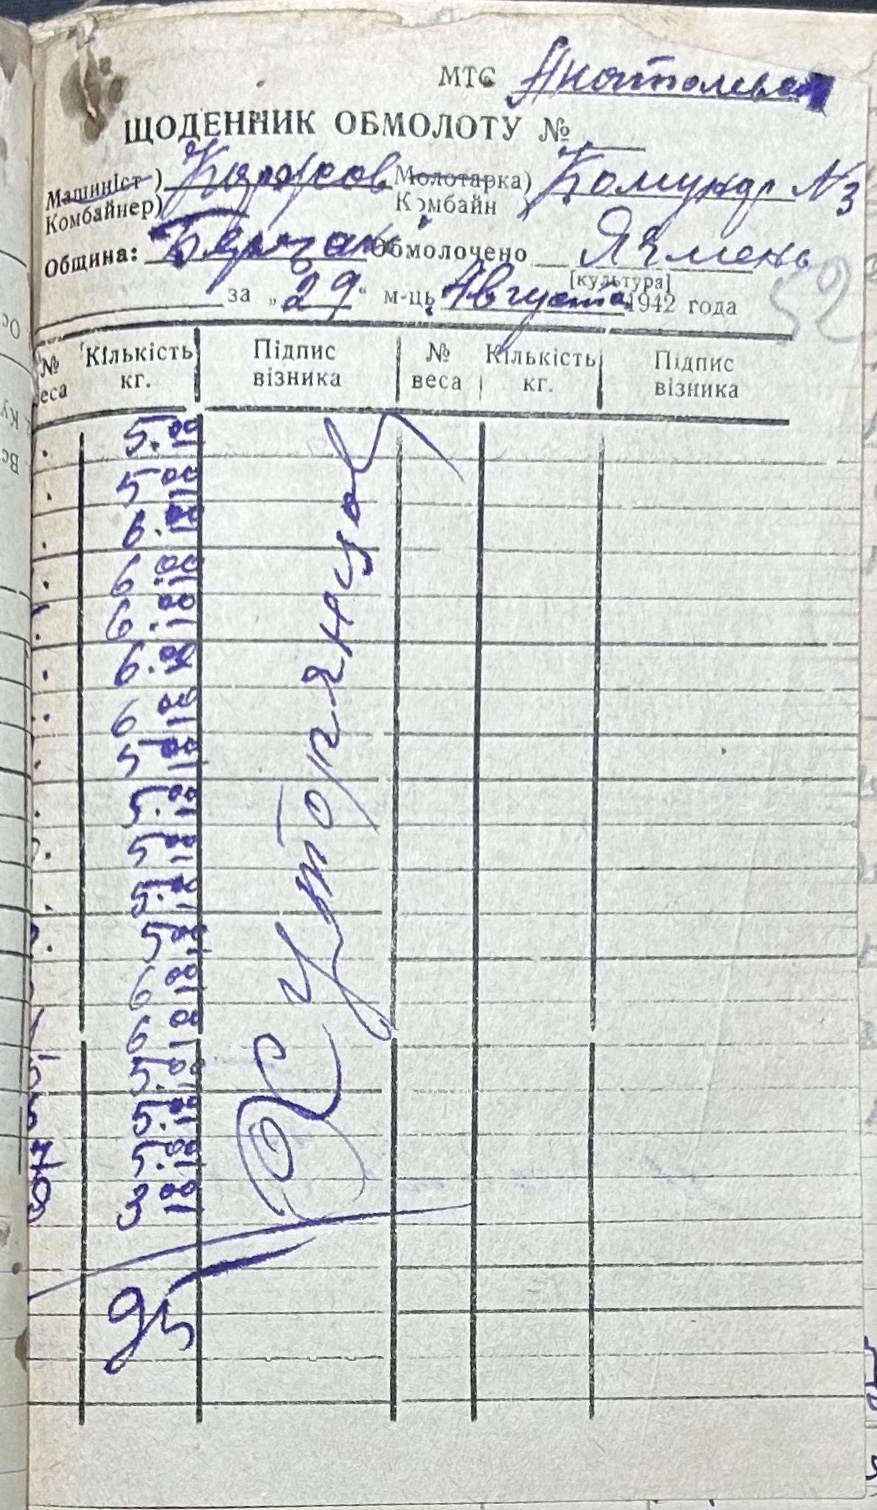 МТС Анатольев
ЩОДЕННИК ОБМОЛОТУ №
Машиніст) Молотарка) Комунар № 3
Комбайнер) Комбайн )
Община: Обмолочено Ячмень
[культура]
за „29“ м-ць Августа 1942 года
52
№ веса Кількість кг. Підпис візника № веса Кількість кг. Підпис візника
5.00
5 00
6.00
6.00
6.00
6.00
6 00
5 00
5.00
5 00
5.00
5 00
6 00
6 00
5.00
5.00
5.00
3 00
95